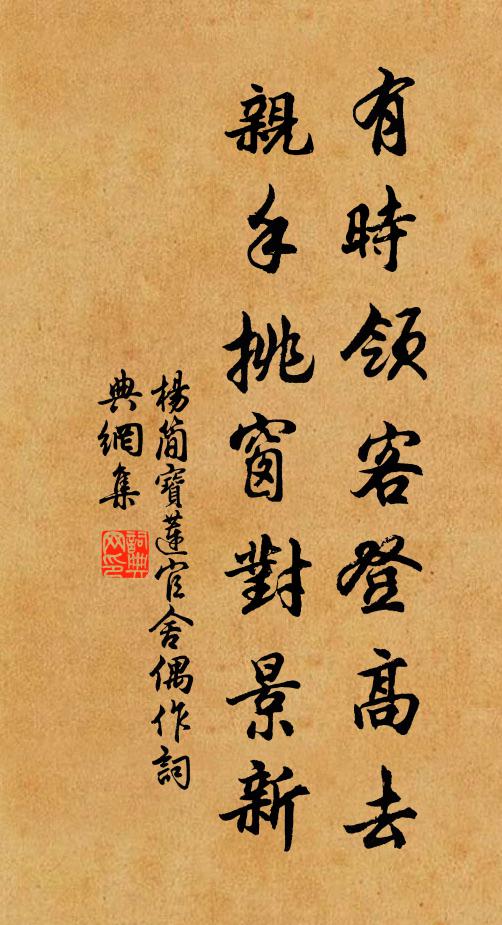 有時領客登高去
親手挑窗對景新
楊簡寶蓮官舍偶作詞
典網集
詞典
网印